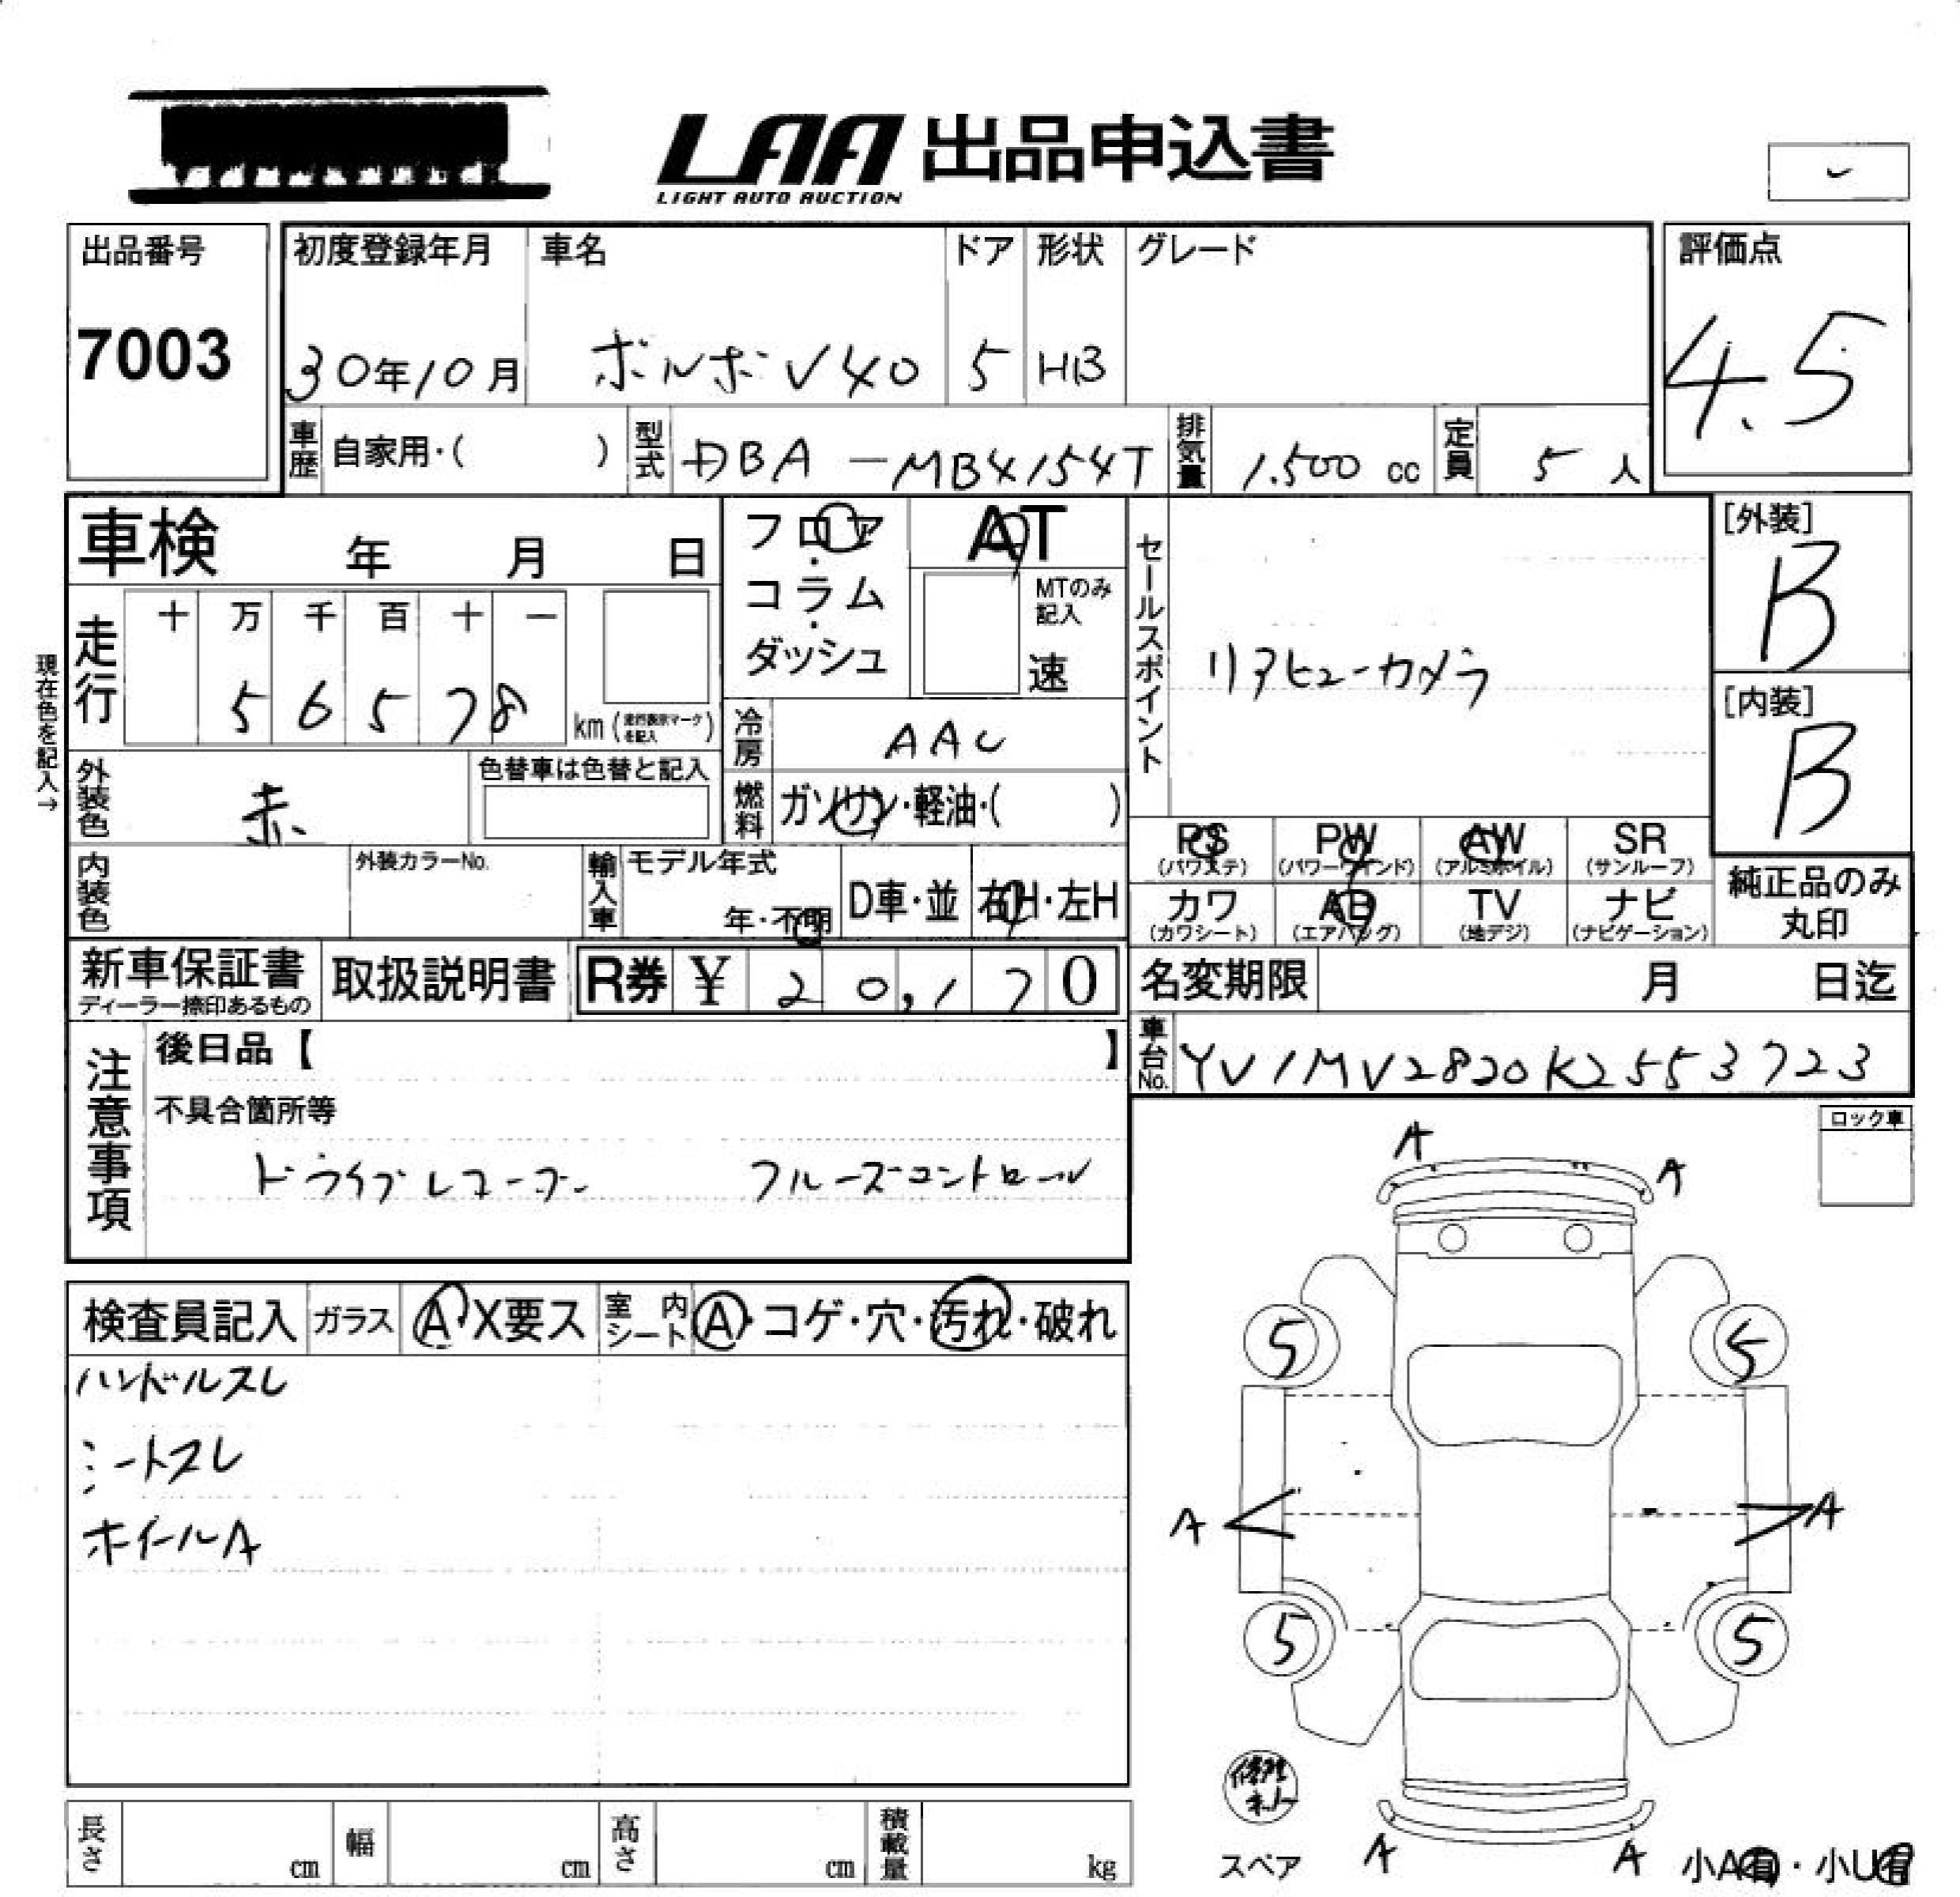 LAA 出品申込書
LIGHT AUTO AUCTION
出品番号
7003
初度登録年月 車名 ドア 形状 グレード
30年10月 ボルボV40 5 HB
評価点
4.5
車歴 自家用・( ) 型式 DBA-MB4154T 排気量 1.500 cc 定員 5 人
車検 年 月 日
フロア・コラム・ダッシュ
AT
MTのみ記入
速
セールスポイント
リアヒューカメラ
[外装]
B
[内装]
B
現在色を記入→
走行 十 万 千 百 十 一
5 6 5 7 8
km (走行表示マークを記入)
冷房 AAC
外装色 赤
色替車は色替と記入
燃料 ガソリン・軽油・( )
PS PW AW SR
(パワステ) (パワーウインド) (アルミホイル) (サンルーフ)
内装色 外装カラーNo. 輸入車 モデル年式
年・不明 D車・並 右H・左H
カワ AB TV ナビ
(カワシート) (エアバッグ) (地デジ) (ナビゲーション)
純正品のみ
丸印
新車保証書
ディーラー捺印あるもの
取扱説明書 R券 ¥ 20,170
名変期限 月 日迄
車台No. YV1MV2820K2553723
注意事項
後日品【 】
不具合箇所等
ドライブレコーダー クルーズコントロール
ロック車
検査員記入 ガラス A・X要ス 室内シート A・コゲ・穴・汚れ・破れ
ハンドルスレ
シートスレ
ホイールA
A
A
5 5
A A
5 5
スペア
A A
小A有・小U有
長さ cm 幅 cm 高さ cm 積載量 kg